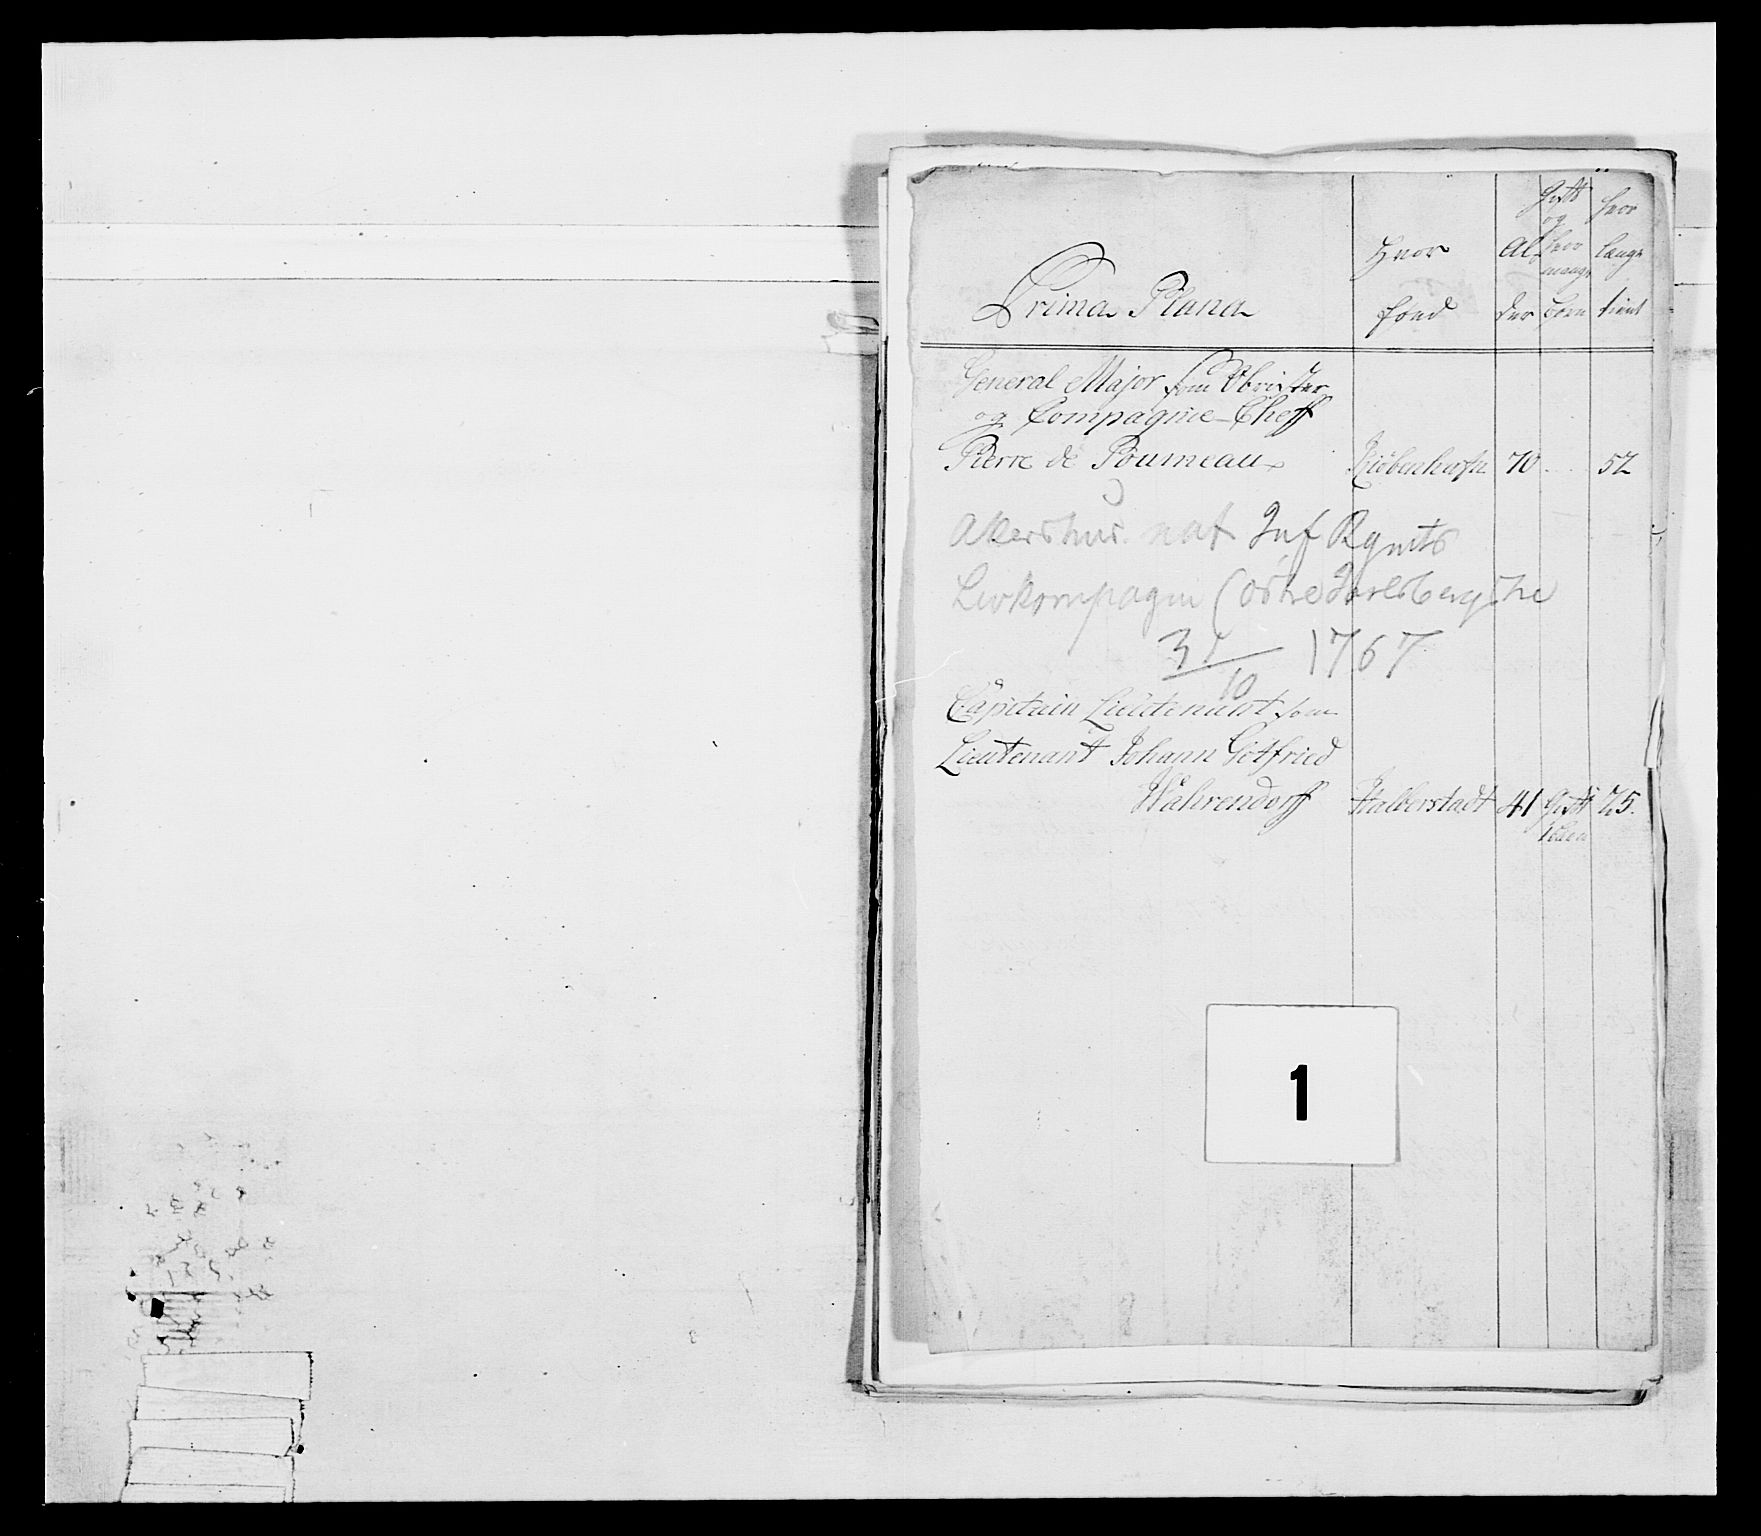 Prima Plana
Hvor
föed
Al,
der
Gift
og
hvor
mange
börn
hvor
længe
tient
General Major som Obrister
og Compagnie Cheff
Pierre de Poumeau Kiöbenhafn 70 52
Akershus nat Inf Rgmts
Livkompagni (østre Jarlsbergske
31/10 1767
Capitain Lieutenant som
Lieutenant Johann Gotfried
Wahrendorff Halberstadt 41 Gift 25.
1